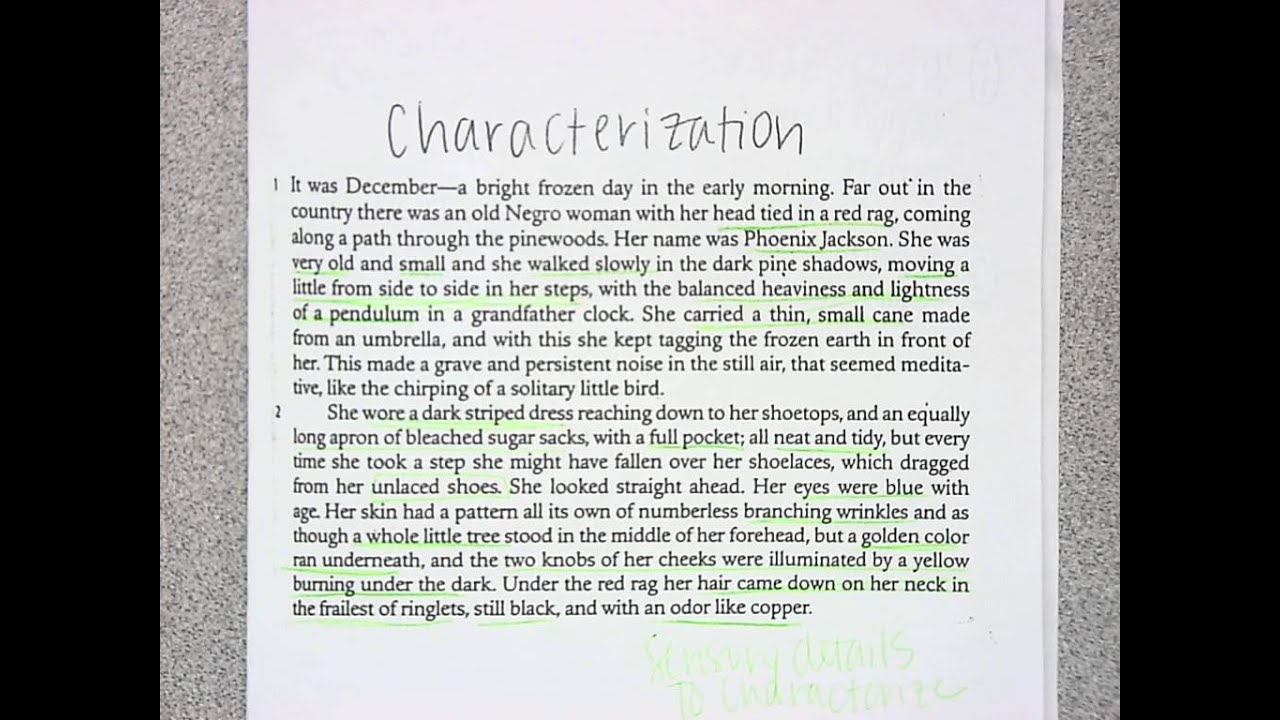 Characterization
1 It was December—a bright frozen day in the early morning. Far out in the
country there was an old Negro woman with her head tied in a red rag, coming
along a path through the pinewoods. Her name was Phoenix Jackson. She was
very old and small and she walked slowly in the dark pine shadows, moving a
little from side to side in her steps, with the balanced heaviness and lightness
of a pendulum in a grandfather clock. She carried a thin, small cane made
from an umbrella, and with this she kept tagging the frozen earth in front of
her. This made a grave and persistent noise in the still air, that seemed medita-
tive, like the chirping of a solitary little bird.
2 She wore a dark striped dress reaching down to her shoetops, and an equally
long apron of bleached sugar sacks, with a full pocket; all neat and tidy, but every
time she took a step she might have fallen over her shoelaces, which dragged
from her unlaced shoes. She looked straight ahead. Her eyes were blue with
age. Her skin had a pattern all its own of numberless branching wrinkles and as
though a whole little tree stood in the middle of her forehead, but a golden color
ran underneath, and the two knobs of her cheeks were illuminated by a yellow
burning under the dark. Under the red rag her hair came down on her neck in
the frailest of ringlets, still black, and with an odor like copper.
Sensory details
to characterize